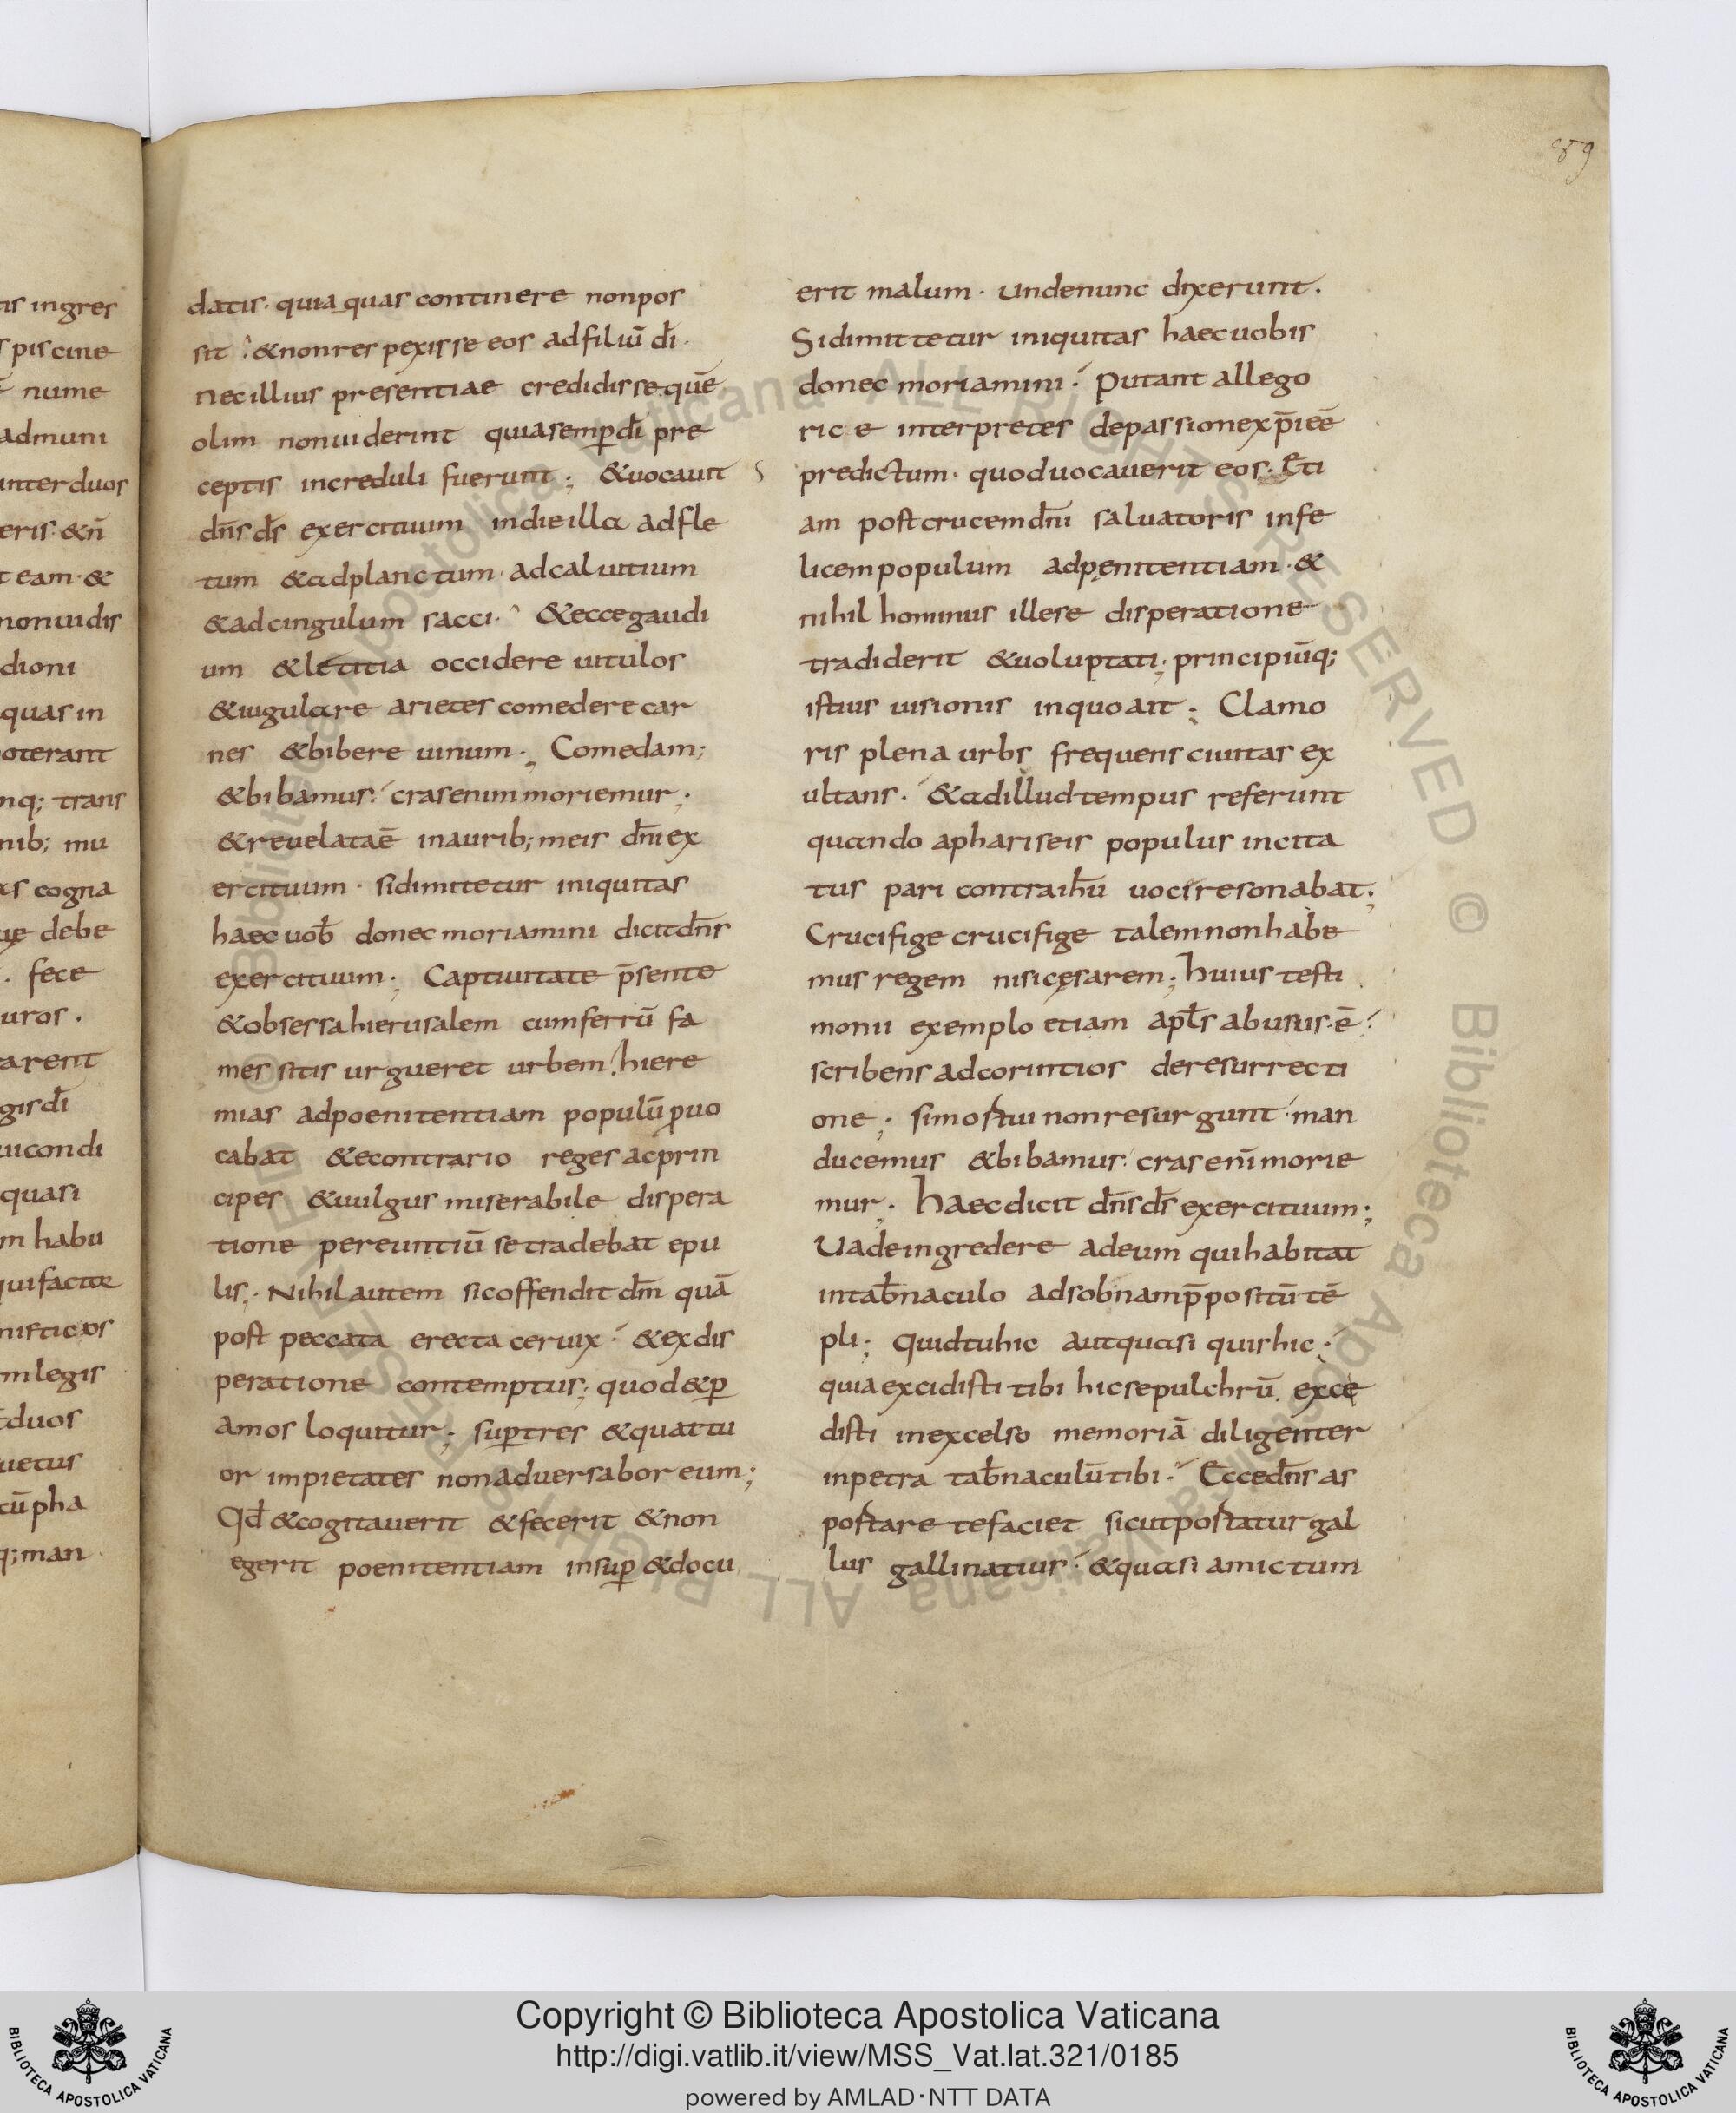 89
datis. quia quas continere nonpos
sit & nonres pexisse eos adfiliū dī.
necillius presentiae credidisse quē
olim nonuiderint quiasemꝑdī pre
ceptis increduli fuerunt; &uocauit
dn̄s ds̄ exercituum indieilla adfle
tum &adplanctum. adcaluitium
&adcingulum sacci. &eccegaudi
um &letitia occidere uitulos
&iugulare arietes comederecar
nes &bibere uinum. Comedam;
&bibamus. crasenimmoriemur.
&reuelataē inaurib; meis dn̄iex
ercituum. sidimitetur iniquitas
haecuob̄ donecmoriamini dicitdn̄s
exercituum; Captiuitate p̄sente
&obsessahierusalem cumferrū fa
mes sitis urgueret urbem. hiere
mias adpoenitentiam populū ꝓuo
cabat &econtrario reges acprin
cipes &uulgus miserabile dispera
tione pereuntiū setradebat epu
lis. Nihilautem sicoffendit dm̄ quā
post peccata erecta ceruix. &exdis
peratione contemptus; quod&ꝑ
amos loquitur; suꝑtres &quattu
or impietates nonaduersaboreum;
Qd̄ &cogitauerit &fecerit &non
egerit poenitentiam insuꝑ &docu
erit malum. undenunc dixerunt.
Sidimittetur iniquitas haecuobis
donecmoriamini. Putant allego
rice interpretes depassionexp̄ieē
predictum. quoduocauerit eos. Eti
am postcrucemdn̄i saluatoris infe
licempopulum adpęnitentiam. &
nihil hominus illese disperatione
tradiderit &uoluptati; principiūq;
istius uisionis inquoait; Clamo
ris plena urbs frequens ciuitas ex
ultans. &adilludtempus referunt
quando aphariseis populus incita
tus pari contraih̄u uociresonabat;
Crucifige crucifige talemnonhabe
mus regem nisicęsarem; huius testi
monii exemplo etiam apl̄s abusus.ē
scribens adcorintios deresurrecti
one; simostui nonresurgunt. man
ducemus &bibamus. craseni̅morie
mur. haecdicit dn̄sds̄ exercituum;
Uadeingredere adeum quihabitat
intab̄naculo adsobnamp̄positūtē
pli; quidtuhic autquasi quishic;
quiaexcidisti tibi hicsepulchrū. excę
disti inexcelso memoriā diligenter
inpetra tab̄naculūtibi. Eccedn̄s as
postare tefaciet sicutpostaturgal
lus gallinatius. &quasi amictum
Copyright © Biblioteca Apostolica Vaticana
http://digi.vatlib.it/view/MSS_Vat.lat.321/0185
powered by AMLAD·NTT DATA